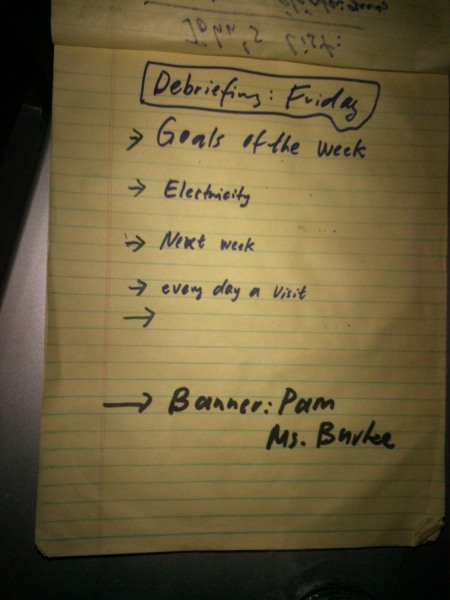 Debriefing: Friday
→ Goals of the week
→ Electricity
→ Next week
→ every day a visit
→
→ Banner: Pam
Ms. Burke